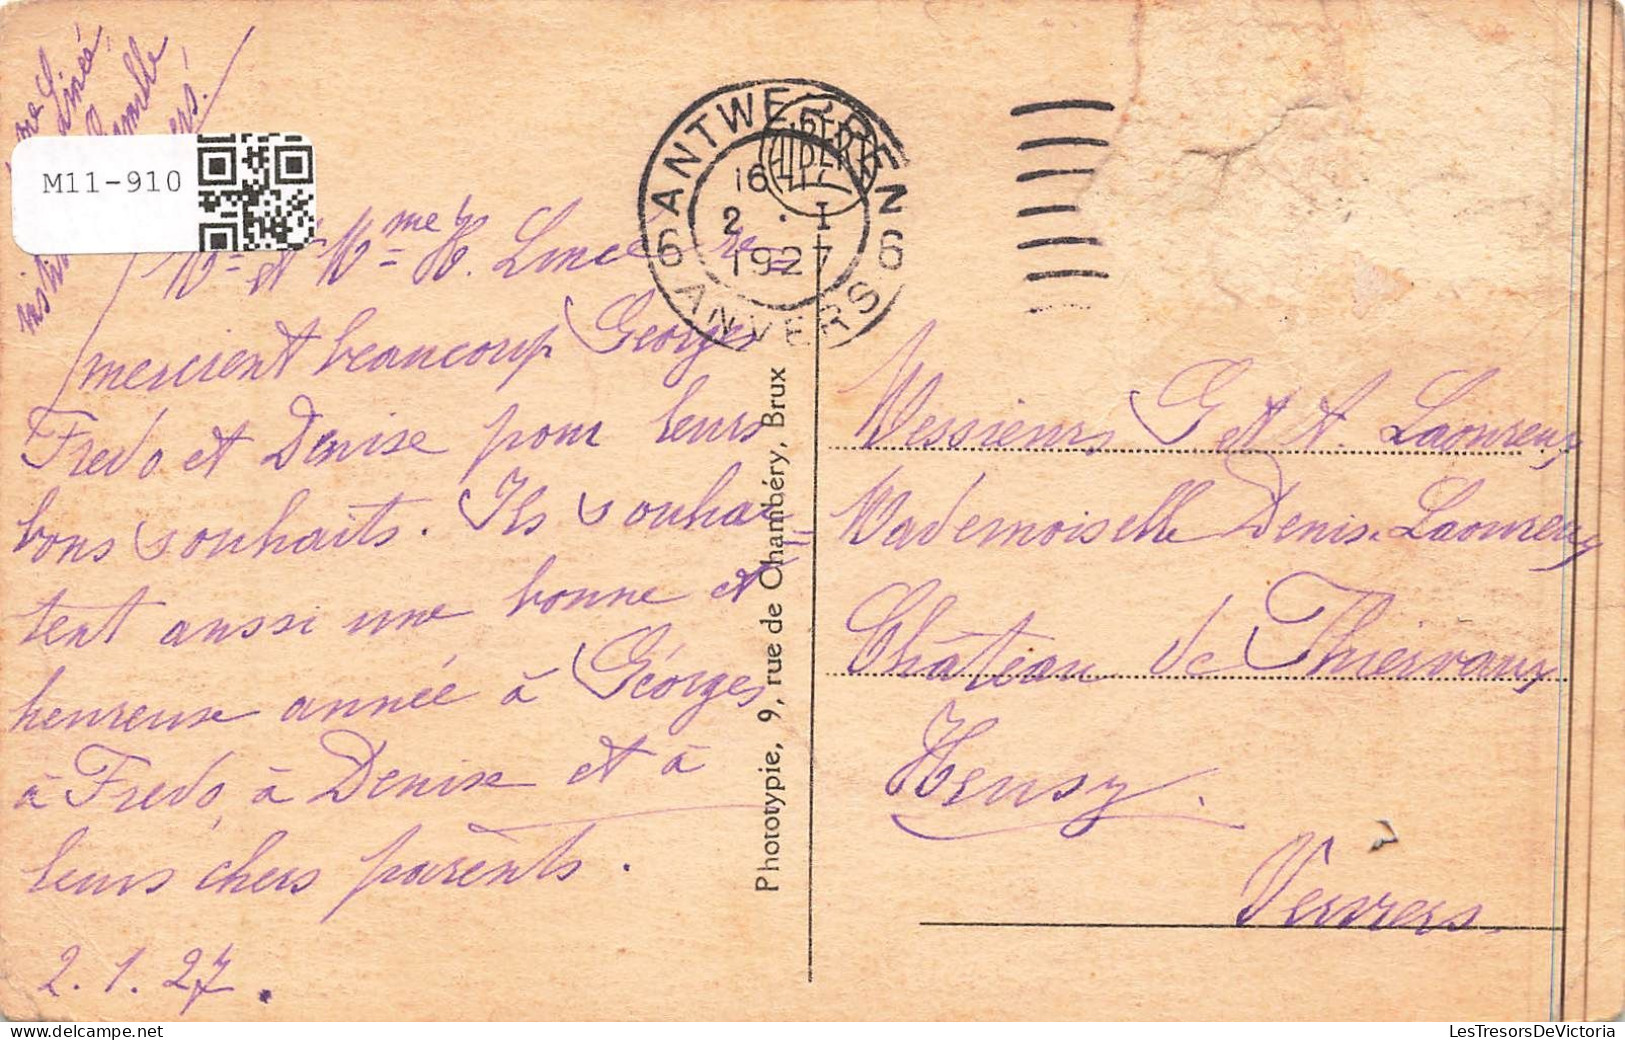 Lincé,
M11-910
Mr et Mme H. Lincé re=
mercient beaucoup Georges
Fredo et Denise pour leurs
bons souhaits. Ils souhai=
tent aussi une bonne et
heureuse année à Géorges
à Fredo, à Denise et à
leurs chers parents.
2.1.27.
ANTWERPEN
6 6
16
2 · I
1927
ANVERS
Phototypie, 9, rue de Chambéry, Brux
Messieurs G et A. Laoureux
Mademoiselle Denise Laoureux
Château de Thiervaux
Heusy.
Verviers.
LesTresorsDeVictoria